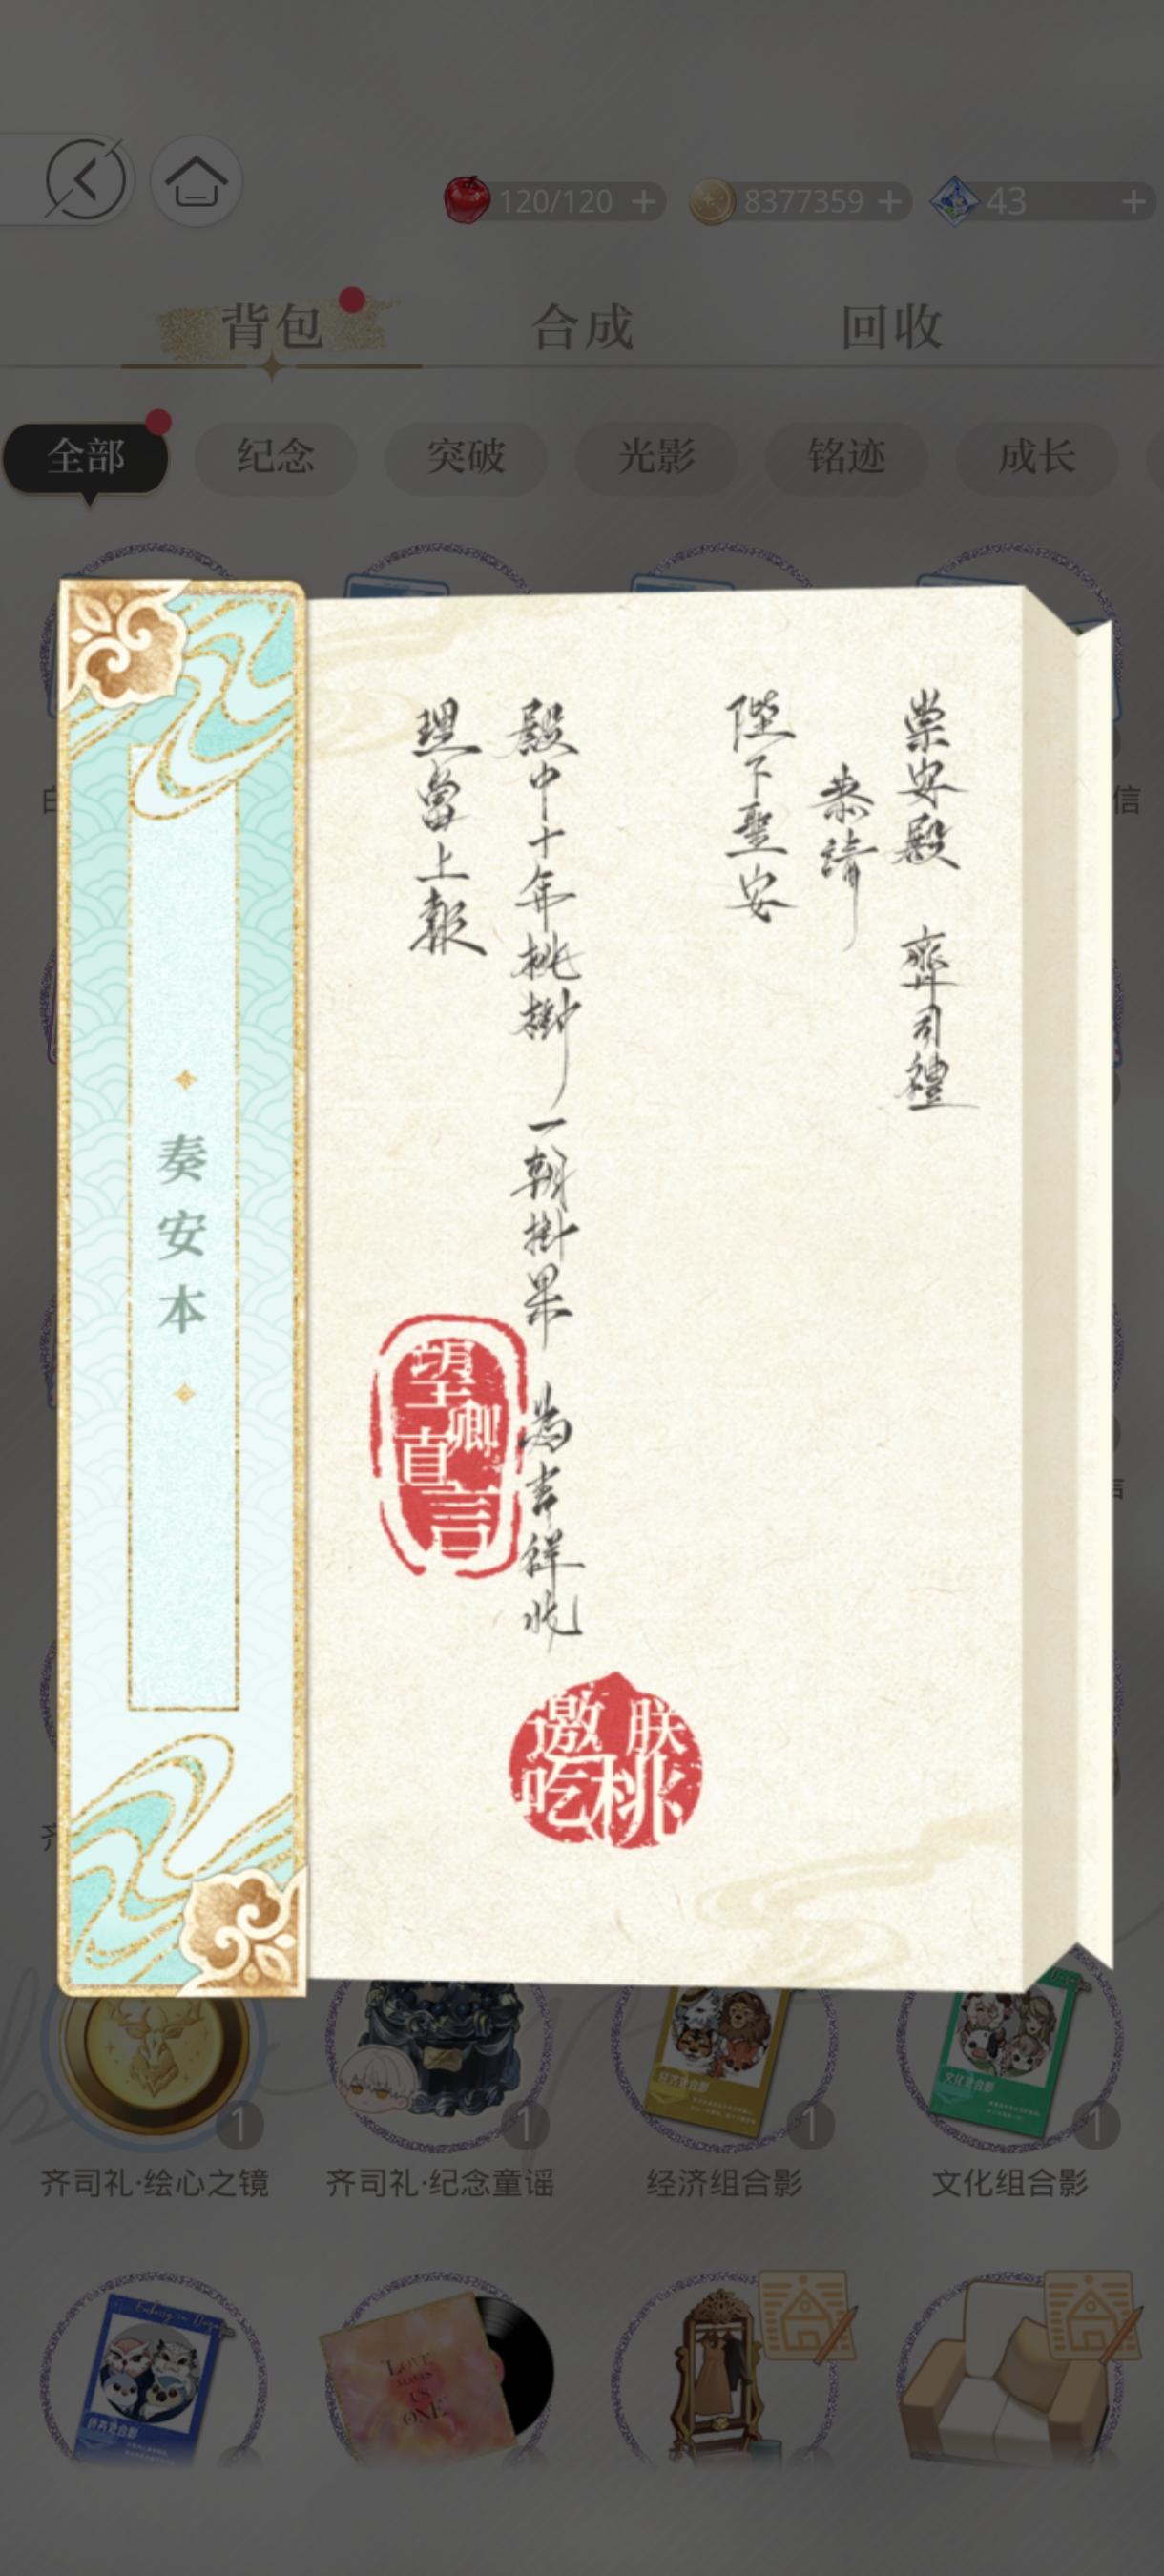 120/120
8377359
43
背包
合成
回收
全部
纪念
突破
光影
铭迹
成长
信
崇安殿 齊司禮
恭請
陛下聖安
殿中十年桃樹一朝掛果 為吉祥兆
理當上報
望卿直言
朕桃邀吃
奏安本
1
1
1
1
齐司礼·绘心之镜
齐司礼·纪念童谣
经济组合影
文化组合影
LOVE
MAKES
US
ONE